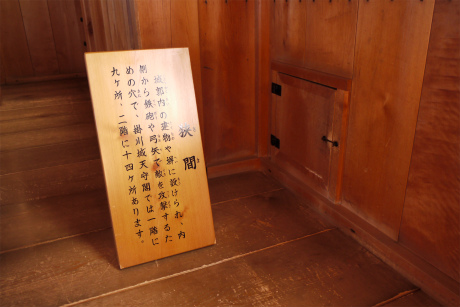 狭間
城郭内の建物や塀に設けられ、内
側から鉄砲や弓矢で敵を攻撃するた
めの穴で、掛川城天守閣では一階に
九ヶ所、二階に十四ヶ所あります。